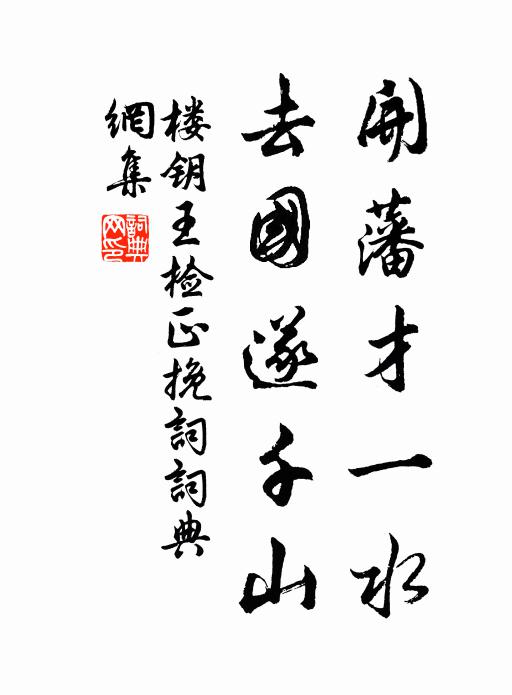 開藩才一水
去國遂千山
楼钥王检正挽詞詞典
網集
詞典
网印